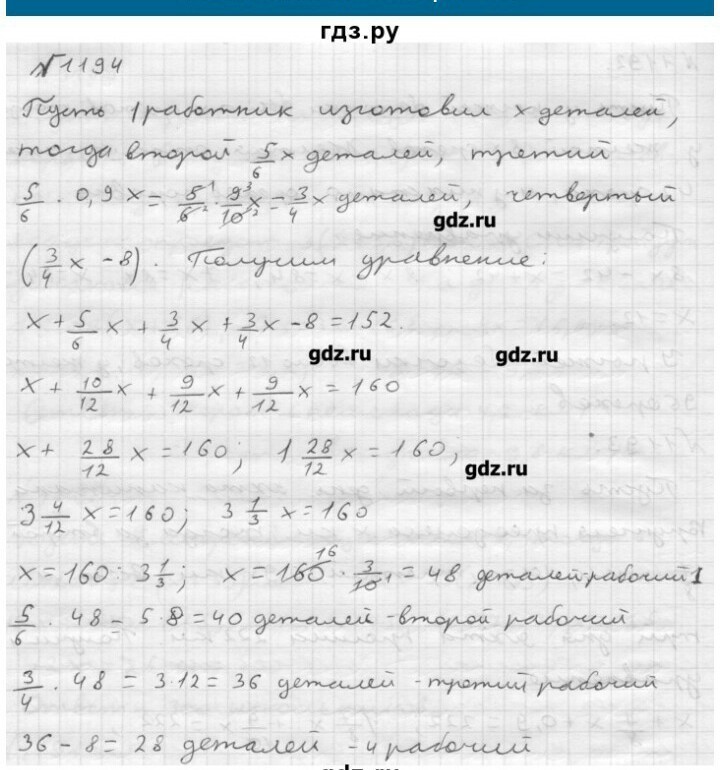 гдз.ру
№1194
Пусть 1 работник изготовил x деталей,
тогда второй 5/6 x деталей, третий
5/6 · 0,9x = 5/6 · 9/10 x = 3/4 x деталей, четвертый
gdz.ru
(3/4 x - 8). Получим уравнение:
x + 5/6 x + 3/4 x + 3/4 x - 8 = 152.
gdz.ru gdz.ru
x + 10/12 x + 9/12 x + 9/12 x = 160
x + 28/12 x = 160; 1 28/12 x = 160;
gdz.ru
3 4/12 x = 160; 3 1/3 x = 160
x = 160 : 3 1/3; x = 160 · 3/10 = 48 деталей-рабочий 1
5/6 · 48 = 5·8 = 40 деталей - второй рабочий
3/4 · 48 = 3·12 = 36 деталей - третий рабочий
36 - 8 = 28 деталей - 4 рабочий